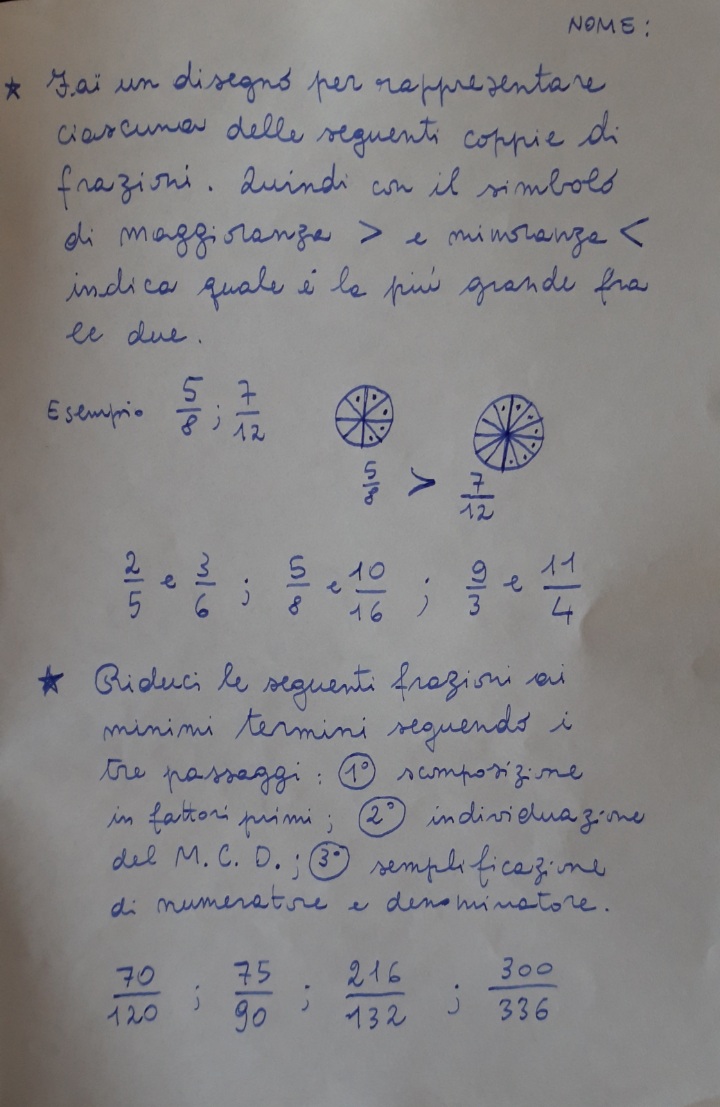 NOME:
★ Fai un disegno per rappresentare
ciascuna delle seguenti coppie di
frazioni. Quindi con il simbolo
di maggioranza > e minoranza <
indica quale è la più grande fra
le due.
Esempio 5/8 ; 7/12
5/8 > 7/12
2/5 e 3/6 ; 5/8 e 10/16 ; 9/3 e 11/4
★ Riduci le seguenti frazioni ai
minimi termini seguendo i
tre passaggi: 1° scomposizione
in fattori primi; 2° individuazione
del M.C.D.; 3° semplificazione
di numeratore e denominatore.
70/120 ; 75/90 ; 216/132 ; 300/336